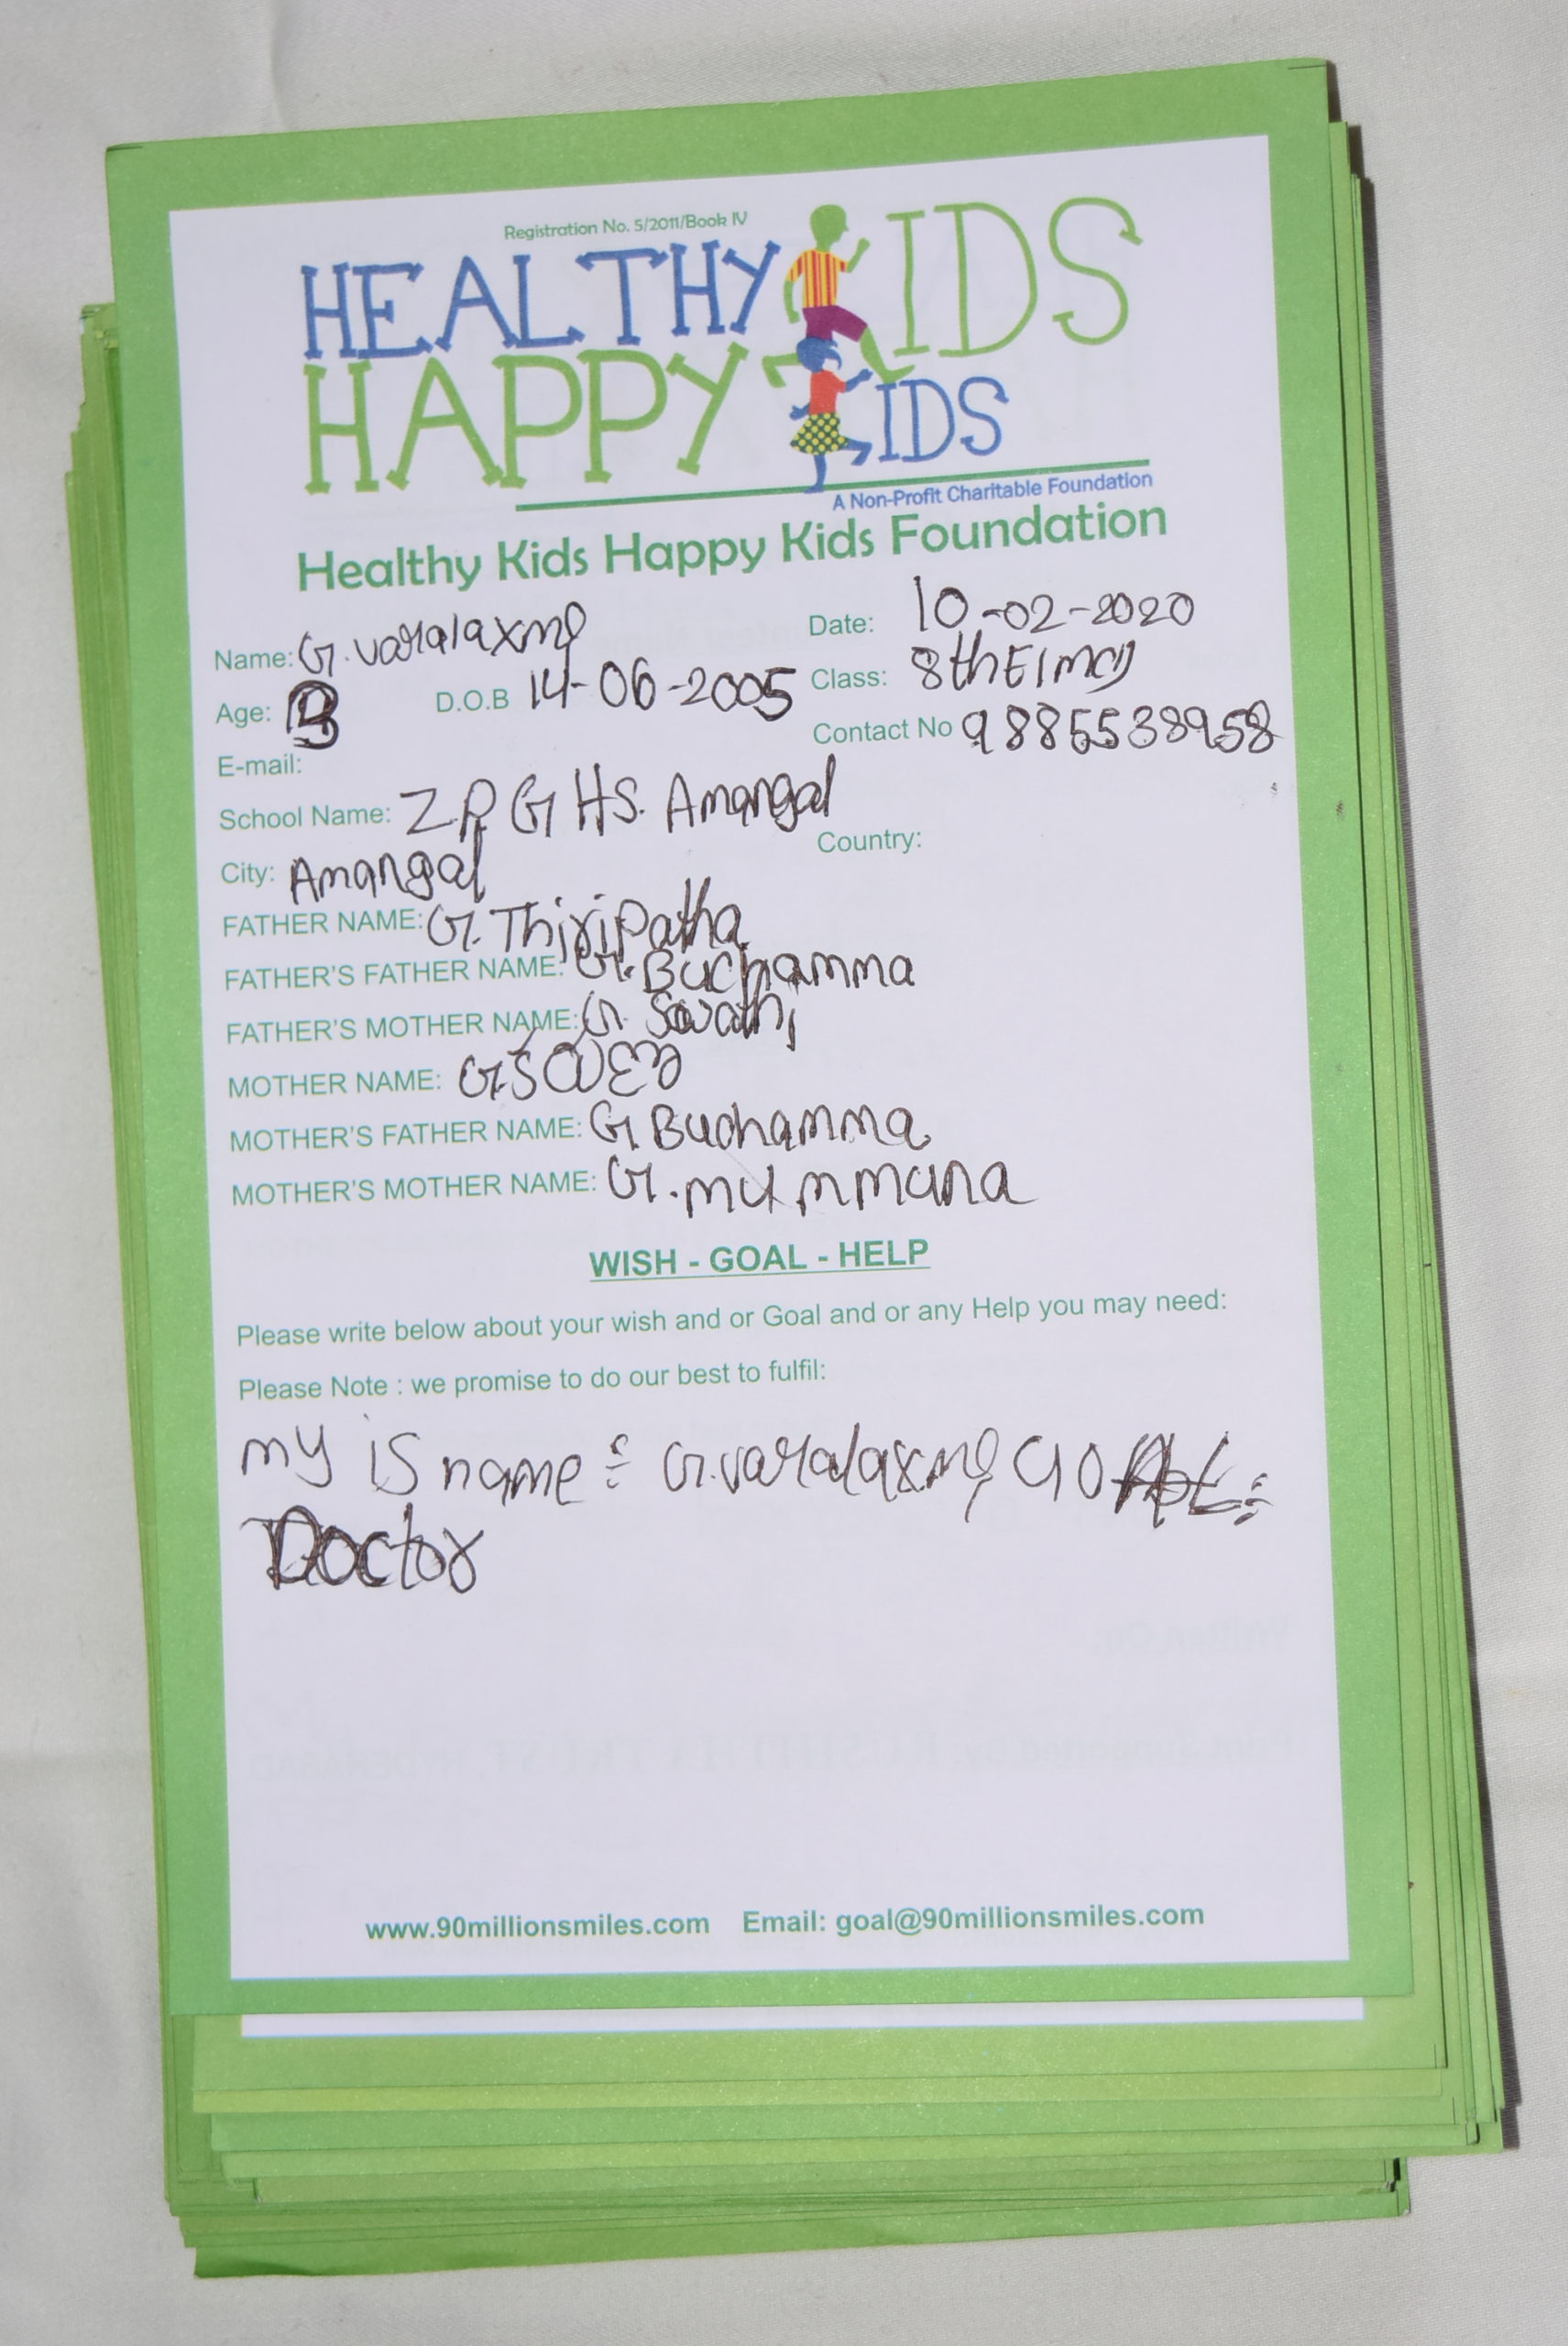 Registration No. 5/2011/Book IV
HEALTHY KIDS
HAPPY KIDS
A Non-Profit Charitable Foundation
Healthy Kids Happy Kids Foundation
Name: G. varalaxmi Date: 10-02-2020
Age: 13 D.O.B 14-06-2005 Class: 8th
E-mail: Contact No 9885538958
School Name: Z.P. G HS. Amangal
City: Amangal Country:
FATHER NAME: G. Thiripatha
FATHER'S FATHER NAME: G. Buchamma
FATHER'S MOTHER NAME: G. Swathi
MOTHER NAME: G.
MOTHER'S FATHER NAME: G Buchamma
MOTHER'S MOTHER NAME: G.
WISH - GOAL - HELP
Please write below about your wish and or Goal and or any Help you may need:
Please Note : we promise to do our best to fulfil:
my is name : G.varalaxmi
Doctor
www.90millionsmiles.com Email: goal@90millionsmiles.com